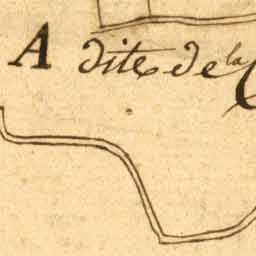 A dite de la